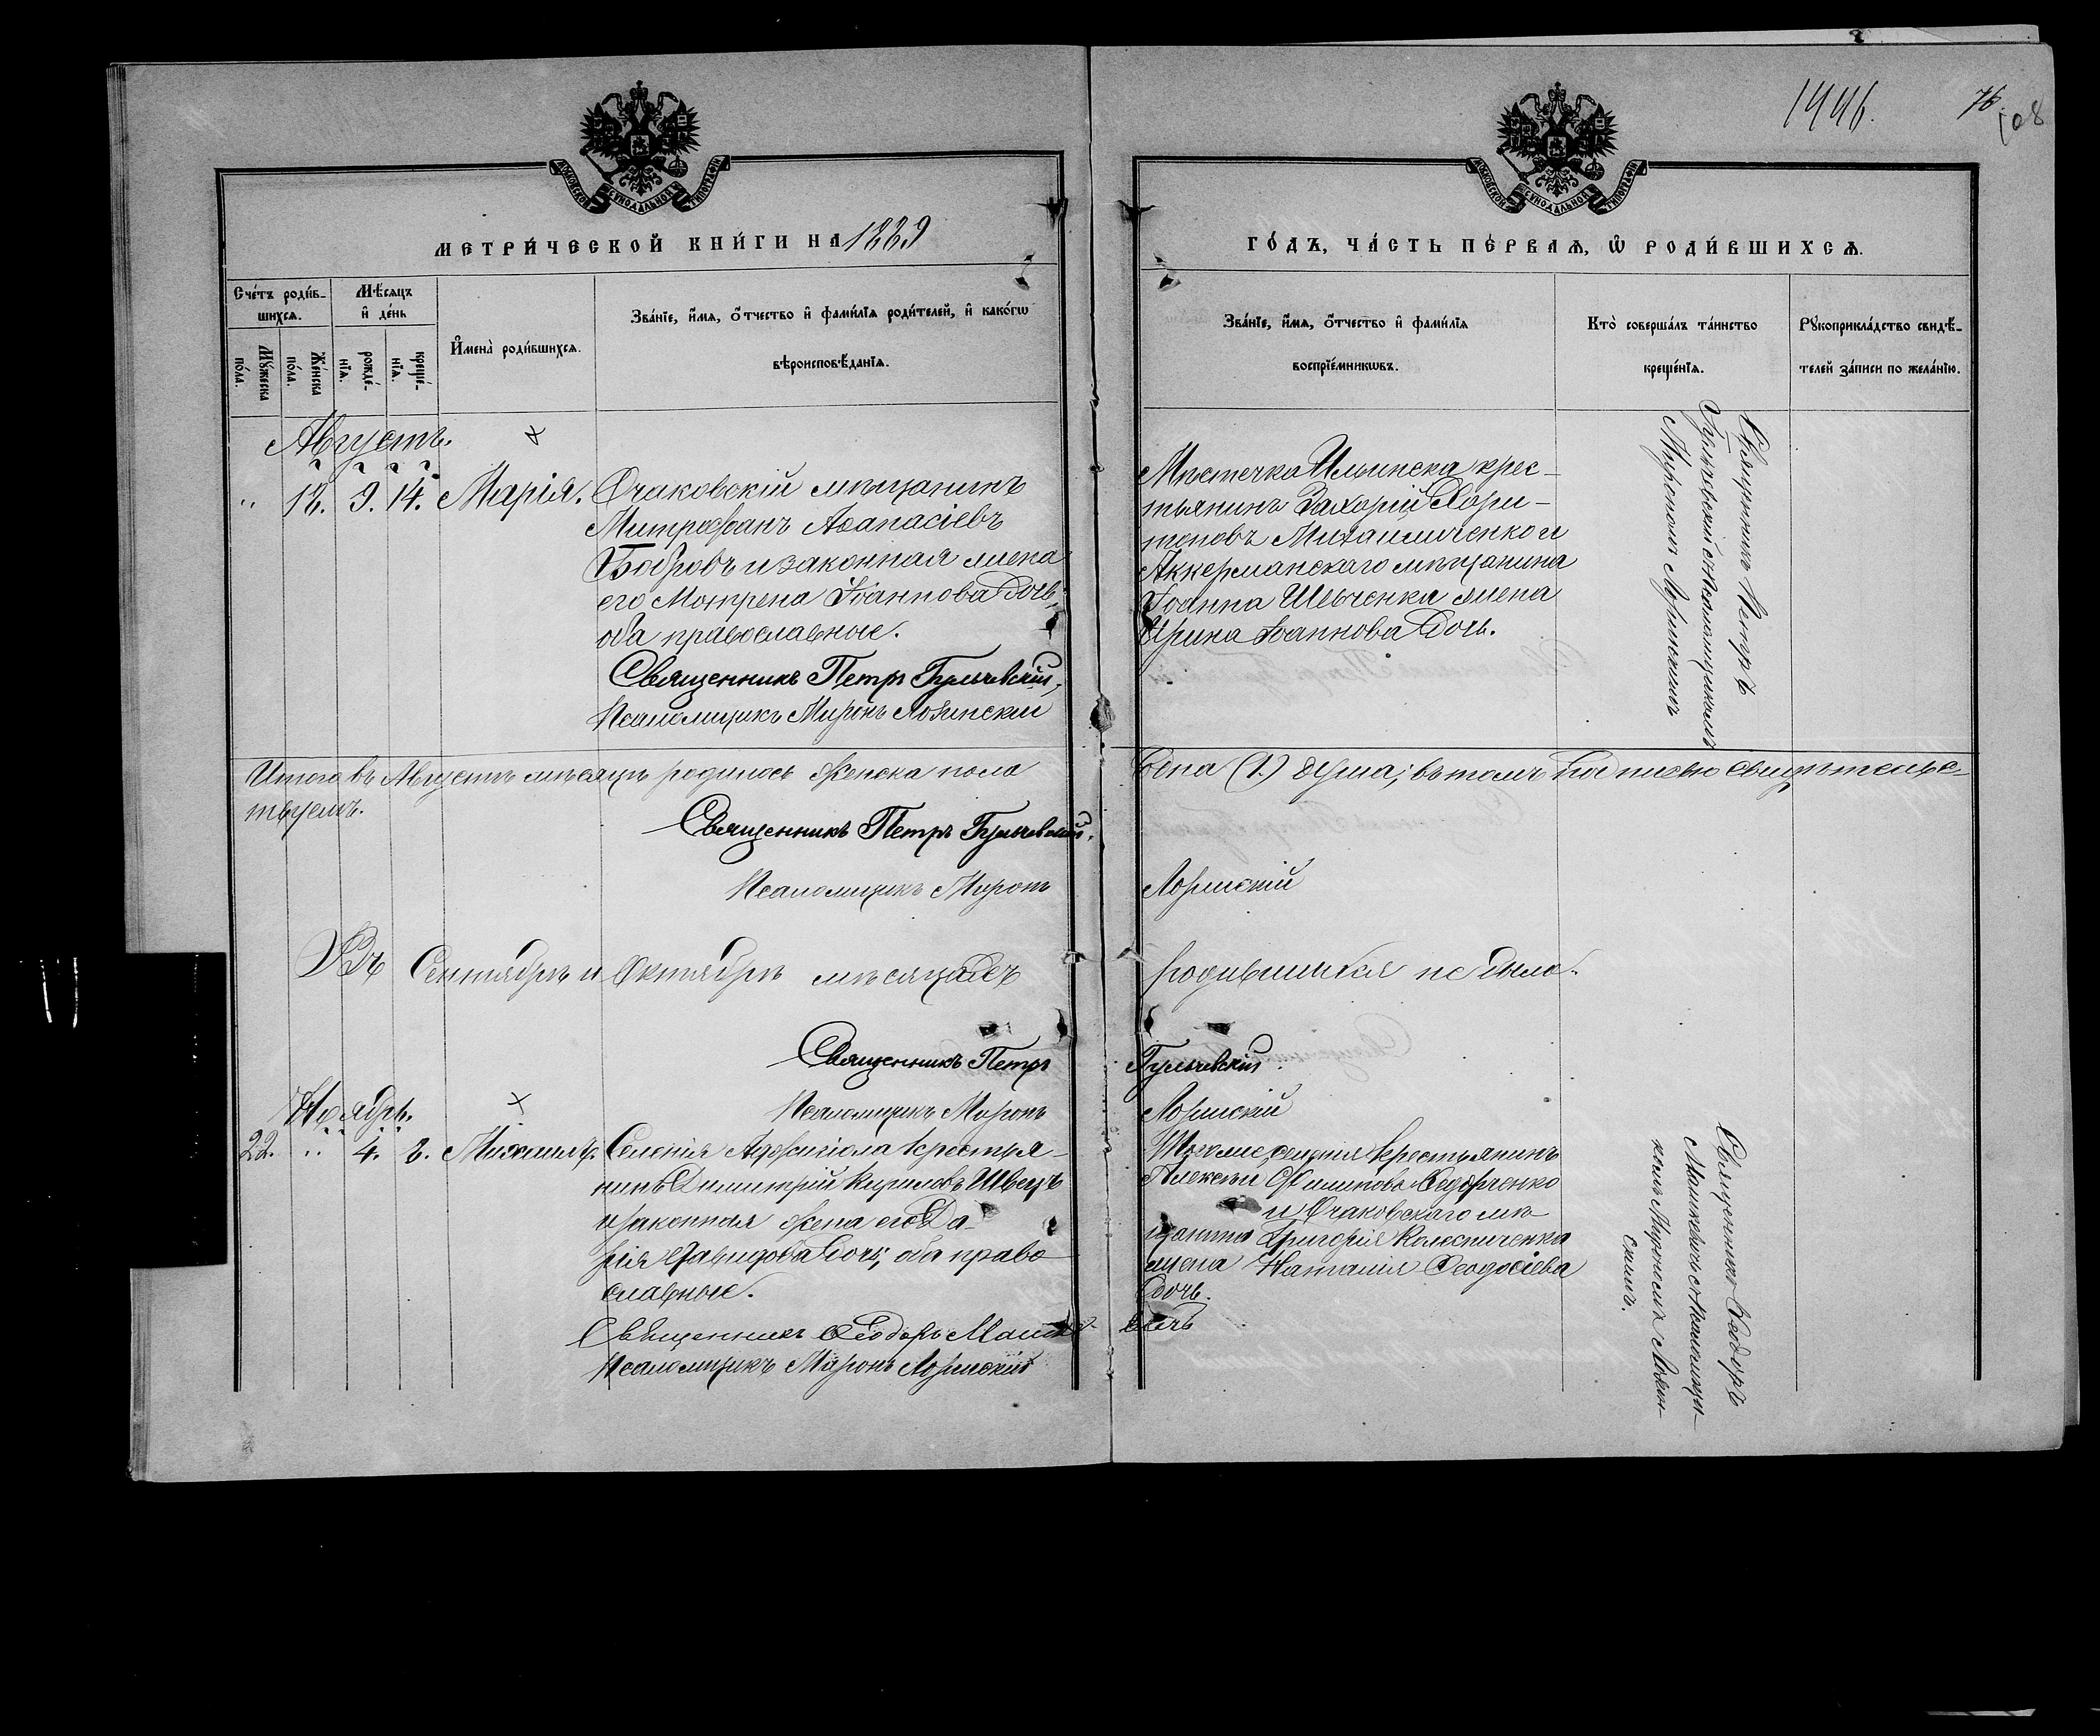 1446.
76.
108
МОСКОВСКОЙ СѴНОДАЛЬНОЙ ТИПОГРАФІИ
МОСКОВСКОЙ СѴНОДАЛЬНОЙ ТИПОГРАФІИ
МЕТРИ́ЧЕСКОЙ КНИ́ГИ НА 1889
ГО́ДЪ, ЧА́СТЬ ПЕ́РВАѦ, Ѡ҆ РОДИ́ВШИХСѦ.
Сче́тъ роди́в-
шихсѧ.
Мꙋ́жеска по́ла.
Же́нска по́ла.
Мѣ́сѧцъ
и҆ де́нь
рожде́-нїѧ.
креще́-нїѧ.
И҆мена̀ роди́вшихсѧ.
Зва́нїе, и҆́мѧ, ѻ҆́тчество и҆ фами́лїѧ роди́телей, и҆ како́гѡ
вѣроисповѣ́данїѧ.
Зва́нїе, и҆́мѧ, ѻ҆́тчество и҆ фами́лїѧ
воспрїе́мникѡвъ.
Кто̀ соверша́лъ та́инство
креще́нїѧ.
Рꙋкоприкла́дство свидѣ́-
телей за́писи по жела́нїю.
Августъ.
" 18. 9. 14. Марія.
Очаковскій мѣщанинъ
Митрофанъ Аѳанасіевъ
Бобровъ и законная жена
его Мотрена Іоаннова дочь,
оба православные.
Священникъ Петръ Гульчевскій,
Псаломщикъ Миронъ Лозинскій
Мѣстечка Ильинска крес-
тьянинъ Захорій Хари-
тоновъ Михаиличенко и
Аккерманскаго мѣщанина
Іоанна Шевченка жена
Ирина Іоаннова дочь.
Священникъ Петръ
Гульчевскій съ псаломщикомъ
Мирономъ Лозинскимъ
Итого въ Августѣ мѣсяцѣ родилось женска пола одна (1.) душа; въ томъ подписью свидѣтельс-
твуемъ.
Священникъ Петръ Гульчевскій.
Псаломщикъ Миронъ Лозинскій
Въ Сентябрѣ и Октябрѣ мѣсяцахъ родившихся не было.
Священникъ Петръ Гульчевскій.
Псаломщикъ Миронъ Лозинскій
Ноябрь.
22. " 4. 8. Михаилъ.
Селенія Аджигіола крестья-
нинъ Димитрій Кириловъ Швецъ
и законная жена его Да-
рія Давидова дочь, оба право
славные.
Священникъ Ѳеодоръ Машкевичъ
Псаломщикъ Миронъ Лозинскій
Тогоже селенія крестьянинъ
Алексѣй Филиповъ Сидорченко
и Очаковскаго мѣ-
щанина Григорія Колесниченка
жена Наталія Ѳеодосіева
дочь.
Священникъ Ѳеодоръ
Машкевичъ съ псаломщи-
комъ Мирономъ Лозин-
скимъ.